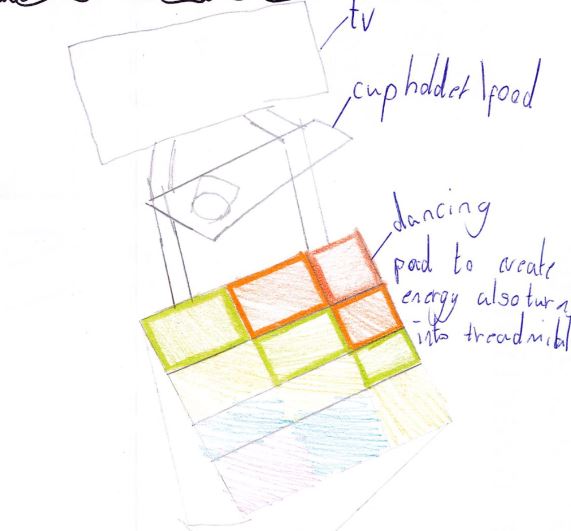 tv
cup holder \food
dancing
pad to create
energy also turn
into treadmill